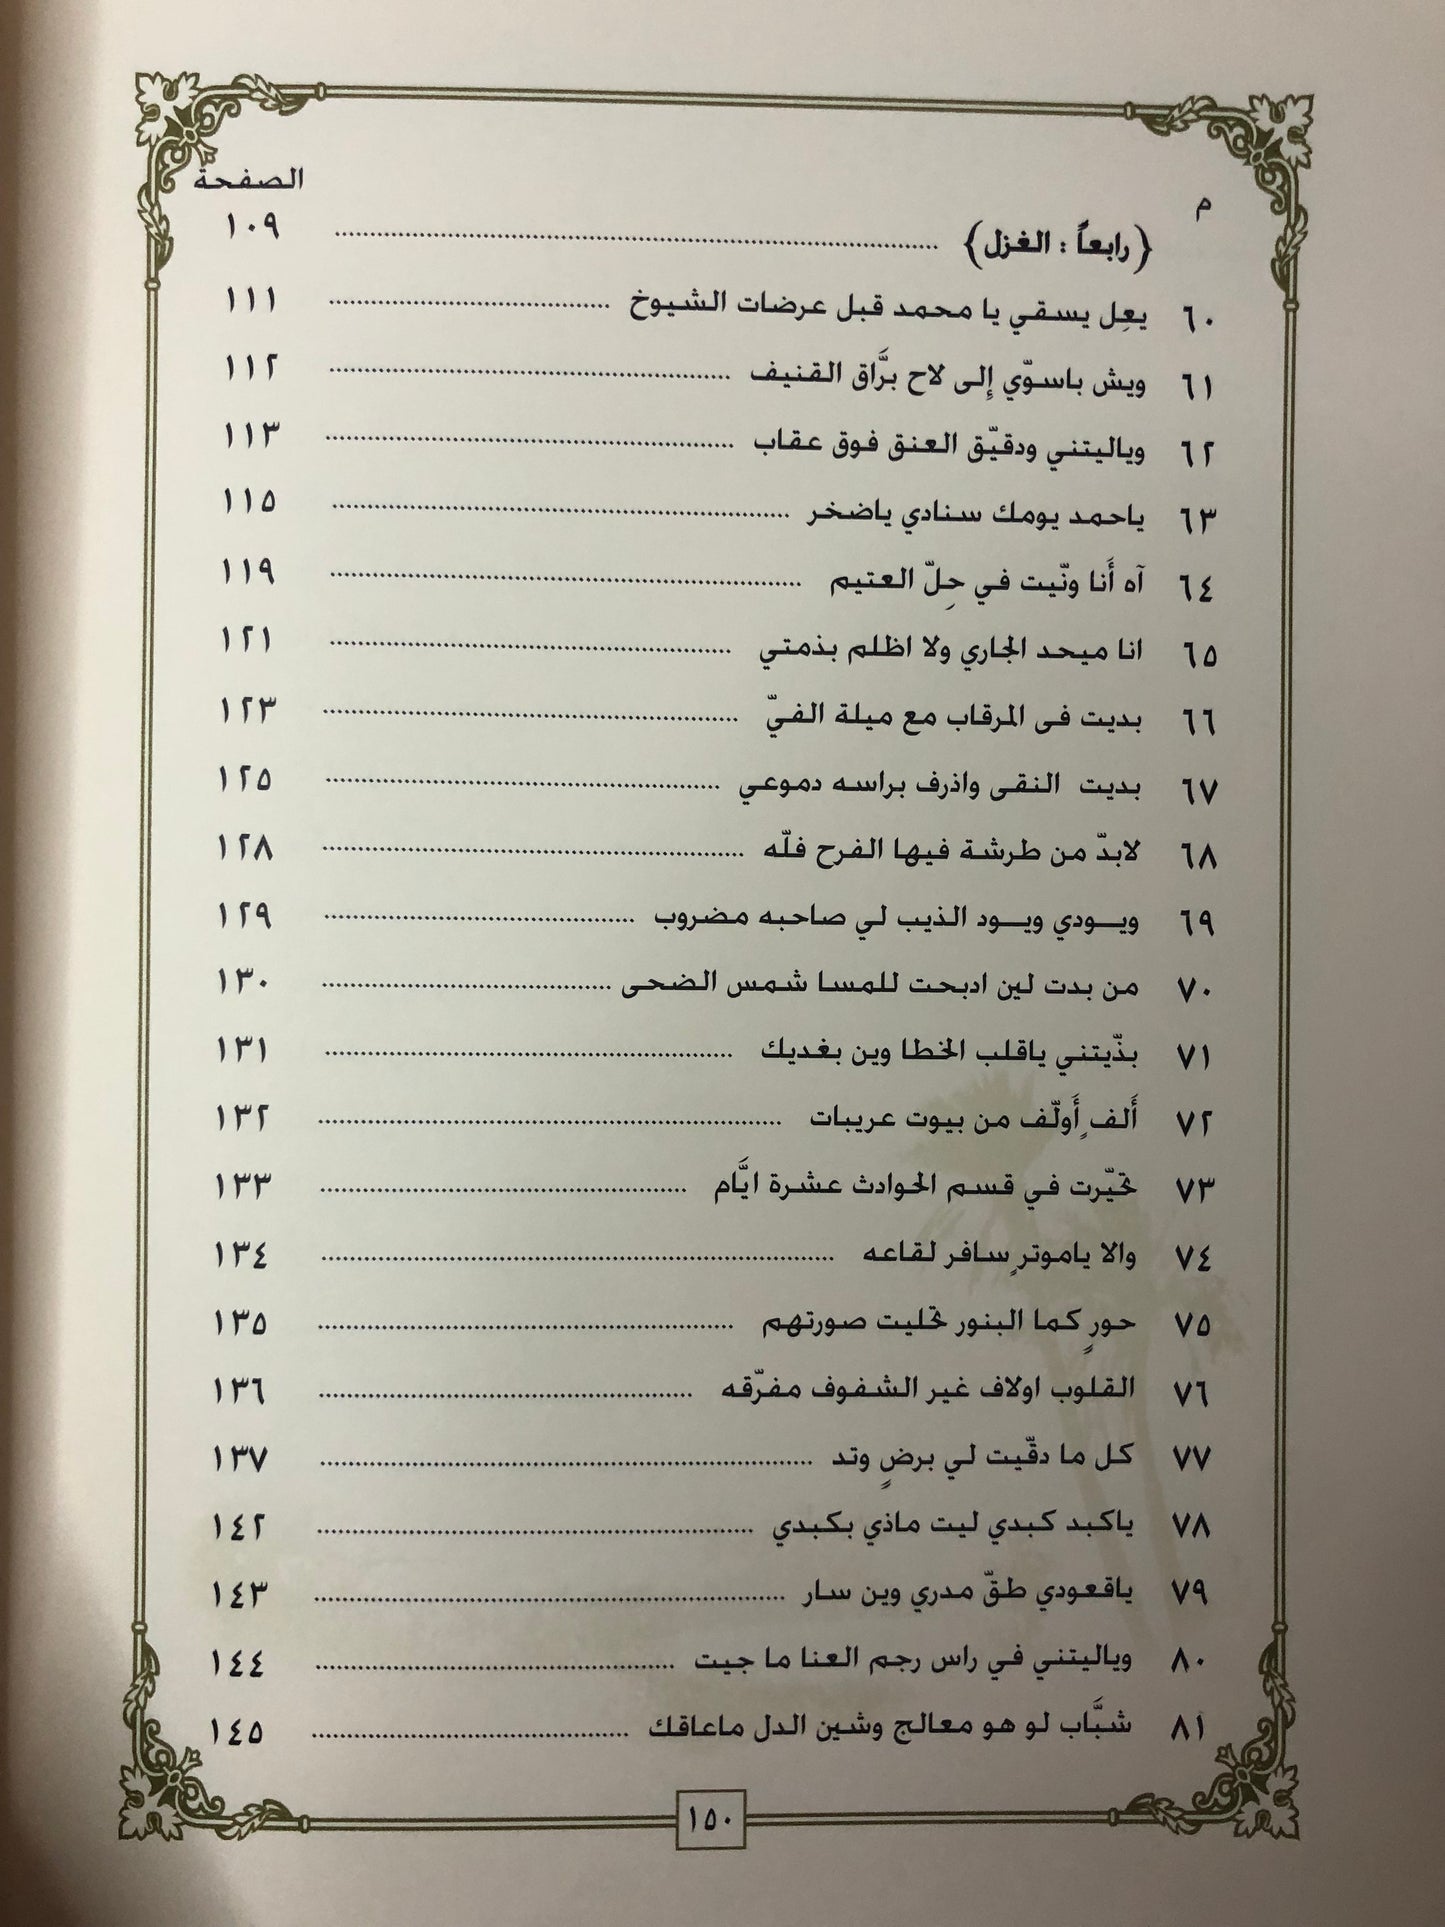 م الصفحة
(رابعاً : الغزل) ........ ١٠٩
٦٠ يعِل يسقي يا محمد قبل عرضات الشيوخ ........ ١١١
٦١ ويش باسوّي إِلى لاح برَّاق القنيف ........ ١١٢
٦٢ وياليتني ودقيّق العنق فوق عقاب ........ ١١٣
٦٣ ياحمد يومك سنادي ياضخر ........ ١١٥
٦٤ آه أَنا ونّيت في حِلّ العتيم ........ ١١٩
٦٥ انا ميحد الجاري ولا اظلم بذمتي ........ ١٢١
٦٦ بديت فى المرقاب مع ميلة الفيّ ........ ١٢٣
٦٧ بديت النقى واذرف براسه دموعي ........ ١٢٥
٦٨ لابدّ من طرشة فيها الفرح فلّه ........ ١٢٨
٦٩ ويـودي ويـود الذيب لي صاحبه مضروب ........ ١٢٩
٧٠ من بدت لين ادبحت للمسا شمس الضحى ........ ١٣٠
٧١ بذّيتني ياقلب الخطا وين بغديك ........ ١٣١
٧٢ أَلفٍ أَولّف من بيوت عريبات ........ ١٣٢
٧٣ تحيّرت في قسم الحوادث عشرة ايَّام ........ ١٣٣
٧٤ والا ياموترٍ سافر لقاعه ........ ١٣٤
٧٥ حورٍ كما البنور تحليت صورتهم ........ ١٣٥
٧٦ القلوب اولاف غير الشفوف مفرّقه ........ ١٣٦
٧٧ كل ما دقّيت لي برضٍ وتد ........ ١٣٧
٧٨ ياكبد كبدي ليت ماذي بكبدي ........ ١٤٢
٧٩ ياقعودي طقّ مدري وين سار ........ ١٤٣
٨٠ وياليتني في راس رجم العنا ما جيت ........ ١٤٤
٨١ شبَّاب لو هو معالج وشين الدل ماعاقك ........ ١٤٥
١٥٠